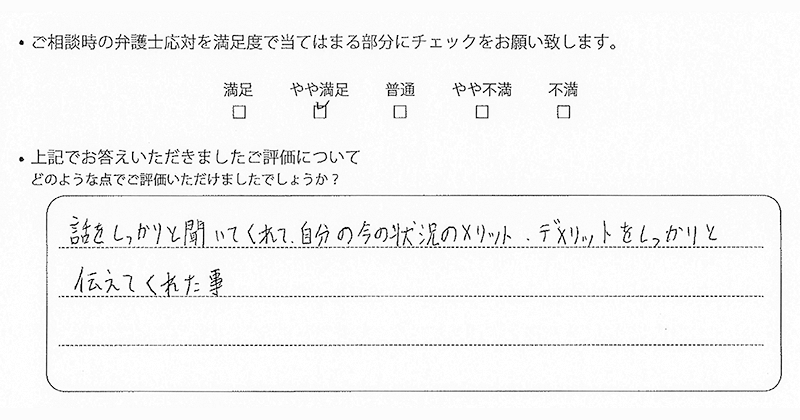 ・ご相談時の弁護士応対を満足度で当てはまる部分にチェックをお願い致します。
満足 やや満足 普通 やや不満 不満
□ ☑ □ □ □
・上記でお答えいただきましたご評価について
どのような点でご評価いただけましたでしょうか？
話をしっかりと聞いてくれて、自分の今の状況のメリット、デメリットをしっかりと
伝えてくれた事